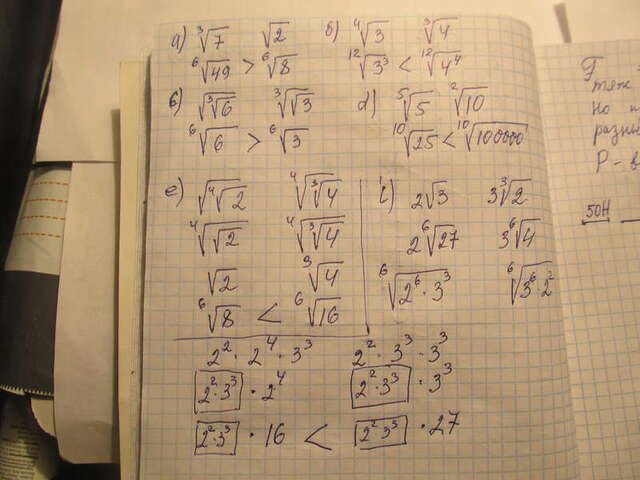 а) ∛7 √2
⁶√49 > ⁶√8
б) ⁴√3 ∛4
¹²√3³ < ¹²√4⁴
в) √∛6 ∛√3
⁶√6 > ⁶√3
д) ⁵√5 ²√10
¹⁰√25 < ¹⁰√100000
е) √⁴√2 ⁴√∛4
⁴√√2 ⁴√∛4
√2 ∛4
⁶√8 < ⁶√16
2√3 3∛2
2⁶√27 3⁶√4
⁶√2⁶·3³ ⁶√3⁶·2²
2²·2⁴·3³ 2²·3³·3³
2²·3³ · 2⁴ 2²·3³ · 3³
2²·3³ · 16 < 2²3³ · 27
но
50Н